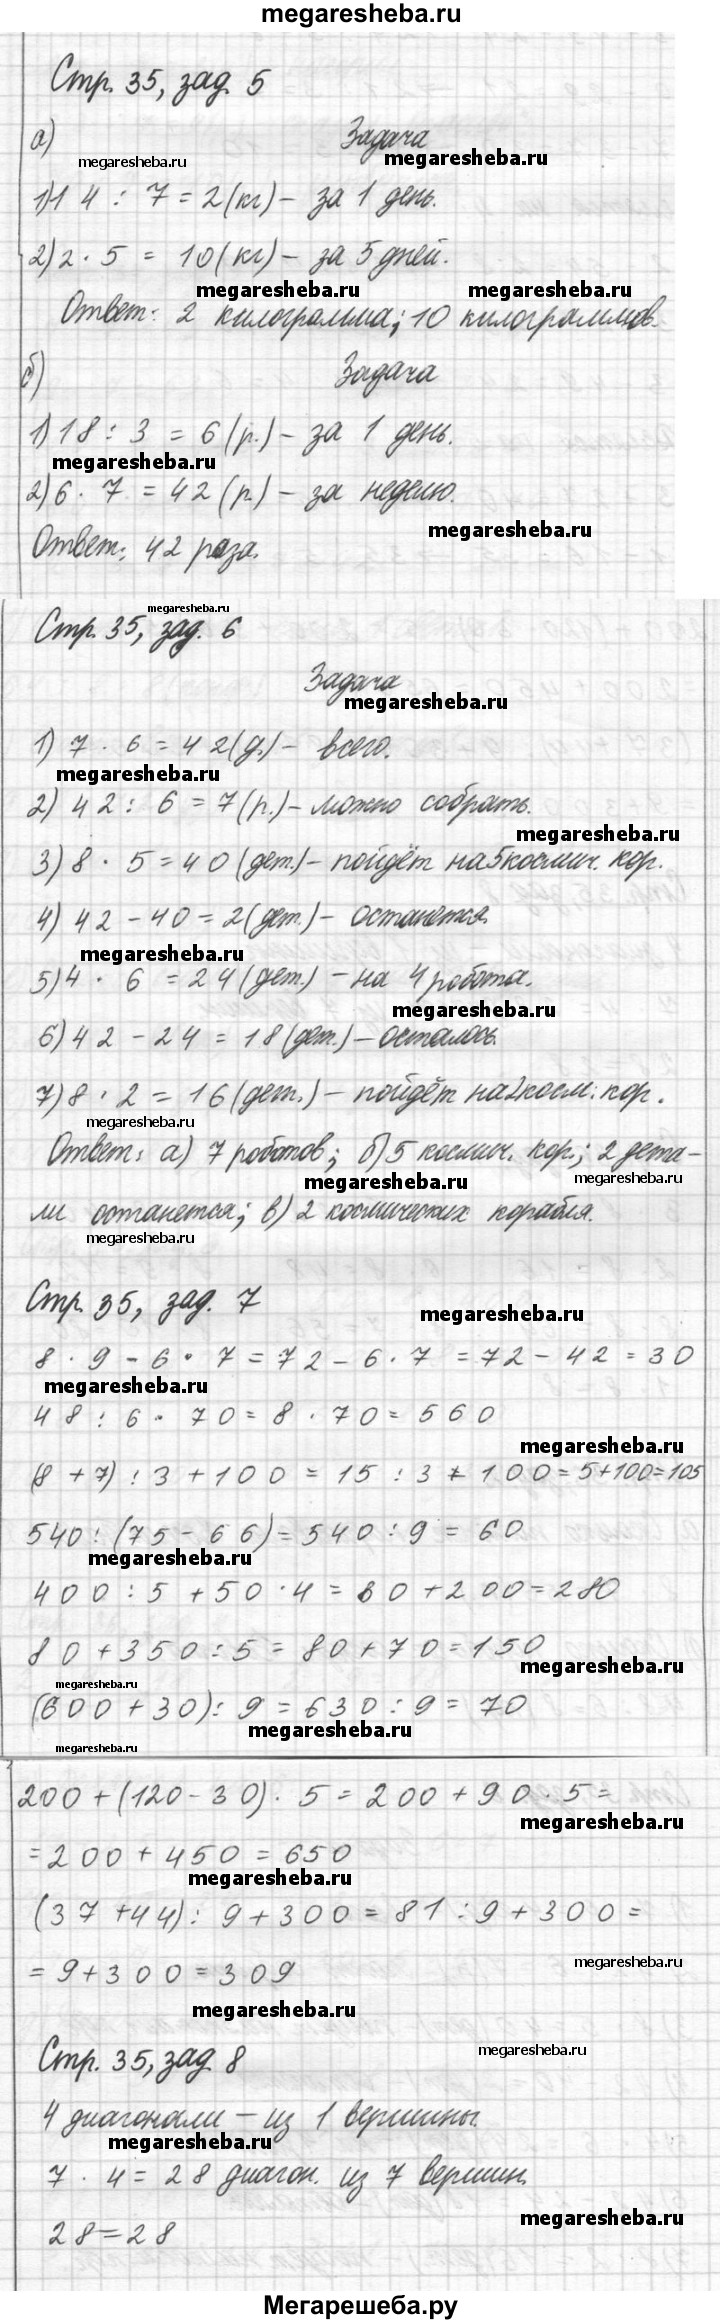 megaresheba.ru
Стр. 35, зад. 5
а) Задача
megaresheba.ru megaresheba.ru
1) 14 : 7 = 2 (кг) - за 1 день.
2) 2 · 5 = 10 (кг) - за 5 дней.
megaresheba.ru megaresheba.ru
Ответ: 2 килограмма; 10 килограммов.
б) Задача
1) 18 : 3 = 6 (р.) - за 1 день.
megaresheba.ru
2) 6 · 7 = 42 (р.) - за неделю.
megaresheba.ru
Ответ: 42 раза.
megaresheba.ru
Стр. 35, зад. 6
Задача
megaresheba.ru
1) 7 · 6 = 42 (д.) - всего.
megaresheba.ru
2) 42 : 6 = 7 (р.) - можно собрать.
megaresheba.ru
3) 8 · 5 = 40 (дет.) - пойдёт на 5 космич. кор.
4) 42 - 40 = 2 (дет.) - останется.
megaresheba.ru
5) 4 · 6 = 24 (дет.) - на 4 робота.
megaresheba.ru
6) 42 - 24 = 18 (дет.) - осталось.
7) 8 · 2 = 16 (дет.) - пойдёт на 2 косм. кор.
megaresheba.ru
Ответ: а) 7 роботов; б) 5 космич. кор.; 2 дета-
megaresheba.ru megaresheba.ru
ли останется; в) 2 космических корабля.
megaresheba.ru
Стр. 35, зад. 7
megaresheba.ru
8 · 9 - 6 · 7 = 72 - 6 · 7 = 72 - 42 = 30
megaresheba.ru
48 : 6 · 70 = 8 · 70 = 560
megaresheba.ru
(8 + 7) : 3 + 100 = 15 : 3 + 100 = 5 + 100 = 105
540 : (75 - 66) = 540 : 9 = 60
megaresheba.ru
400 : 5 + 50 · 4 = 80 + 200 = 280
80 + 350 : 5 = 80 + 70 = 150
megaresheba.ru
megaresheba.ru
(600 + 30) : 9 = 630 : 9 = 70
megaresheba.ru
megaresheba.ru
200 + (120 - 30) · 5 = 200 + 90 · 5 =
megaresheba.ru
= 200 + 450 = 650
megaresheba.ru
(37 + 44) : 9 + 300 = 81 : 9 + 300 =
megaresheba.ru
= 9 + 300 = 309
megaresheba.ru
Стр. 35, зад. 8
megaresheba.ru
4 диагонали - из 1 вершины.
megaresheba.ru
7 · 4 = 28 диагон. из 7 вершин.
megaresheba.ru
28 = 28
Мегарешеба.ру